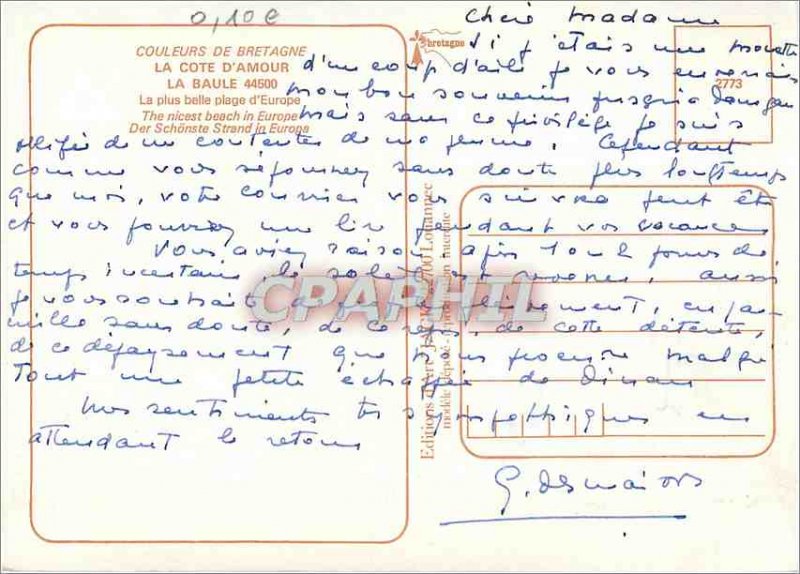 0,10€
COULEURS DE BRETAGNE
LA COTE D'AMOUR
LA BAULE 44500
La plus belle plage d'Europe
The nicest beach in Europe
Der Schönste Strand in Europa
bretagne
2773
Chère Madame
Si j'étais une mouette
d'un coup d'aile je vous enverrais
mon bon souvenir jusqu'à
mais sans ce privilège je suis
obligé de me contenter de ma plume. Cependant
comme vous séjournez sans doute plus longtemps
que moi, votre courrier vous suivra peut être
et vous pourrez me lire pendant vos vacances
Vous aviez raison après 1 ou 2 jours de
temps incertain le soleil est revenu, aussi
je vous souhaite de pleinement, en fa-
mille sans doute, de ce repos, de cette détente,
de ce dépaysement que nous procure malgré
tout une petite échappée de Dinan
Nos sentiments très sympathiques en
attendant le retour
G. Desmairs
Editions d'Art Jack 700 Louannec
modèle déposé - reproduction interdite
CPAPHIL